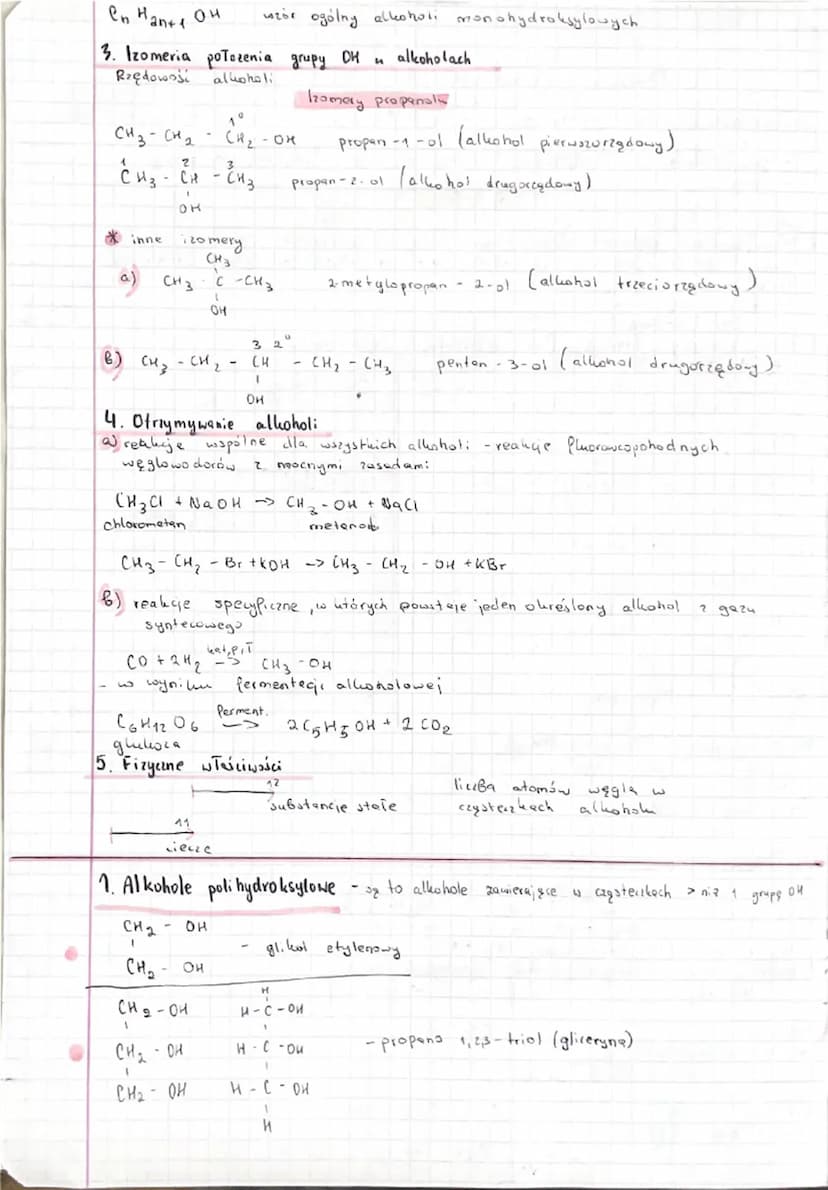 Cn H2n+1 OH wzór ogólny alkoholi monohydroksylowych
3. Izomeria położenia grupy OH w alkoholach
Rzędowość alkoholi
Izomery propanolu
1°
CH3 - CH2 - CH2 - OH propan-1-ol (alkohol pierwszorzędowy)
1 2 3
CH3 - CH - CH3 propan-2-ol (alkohol drugorzędowy)
OH
* inne izomery
CH3
a) CH3 - C - CH3 2-metylopropan - 2-ol (alkohol trzeciorzędowy)
OH
3 2°
b) CH3 - CH2 - CH - CH2 - CH3 pentan-3-ol (alkohol drugorzędowy)
OH
4. Otrzymywanie alkoholi
a) reakcje wspólne dla wszystkich alkoholi - reakcje fluorowcopohodnych
węglowodorów z mocnymi zasadami
CH3Cl + NaOH -> CH3 - OH + NaCl
chlorometan metanol
CH3 - CH2 - Br + KOH -> CH3 - CH2 - OH + KBr
b) reakcje specyficzne, w których powstaje jeden określony alkohol z gazu
syntezowego
kat,p,T
CO + 2H2 -> CH3 - OH
- w wyniku fermentacji alkoholowej
ferment.
C6H12O6 -> 2C5H5OH + 2CO2
glukoza
5. Fizyczne właściwości
12
substancje stałe
liczba atomów węgla w
cząsteczkach alkoholu
11
ciecze
1. Alkohole polihydroksylowe - są to alkohole zawierające w cząsteczkach > niż 1 grupę OH
CH2 - OH
- glikol etylenowy
CH2 - OH
H
CH2 - OH H - C - OH
CH2 - OH H - C - OH - propano 1,2,3-triol (gliceryna)
CH2 - OH H - C - OH
H